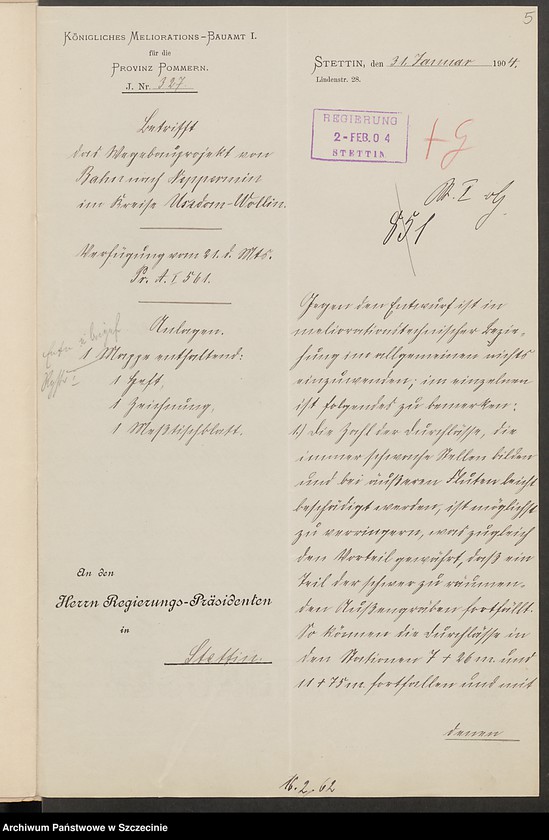 5
Königliches Meliorations-Bauamt I.
für die
Provinz Pommern.
J. Nr. 327
Stettin, den 31. Januar 1904.
Lindenstr. 28.
REGIERUNG
2-FEB.04
STETTIN
+G
Betrifft
das Wegebauprojekt von
Bahn nach Neppermin
im Kreise Usedom-Wollin.
Verfügung vom 21. d. Mts.
Pr. A. I 561.
Anlagen.
1 Mappe enthaltend:
1 Heft,
1 Zeichnung,
1 Meßtischblatt.
An den
Herrn Regierungs-Präsidenten
in
Stettin.
851
Gegen den Entwurf ist in
meliorationstechnischer Bezie-
hung im allgemeinen nichts
einzuwenden; im einzelnen
ist folgendes zu bemerken:
1.) Die Zahl der Durchlässe, die
immer schwache Stellen bilden
und bei äußeren Fluten leicht
beschädigt werden, ist möglichst
zu verringern, was zugleich
den Vorteil gewährt, daß ein
Teil der schwer zu räumen-
den Außengräben fortfällt.
So können die Durchlässe in
den Stationen 7 + 26 m und
11 + 75 m fortfallen und mit
denen
16.2.62
Archiwum Państwowe w Szczecinie